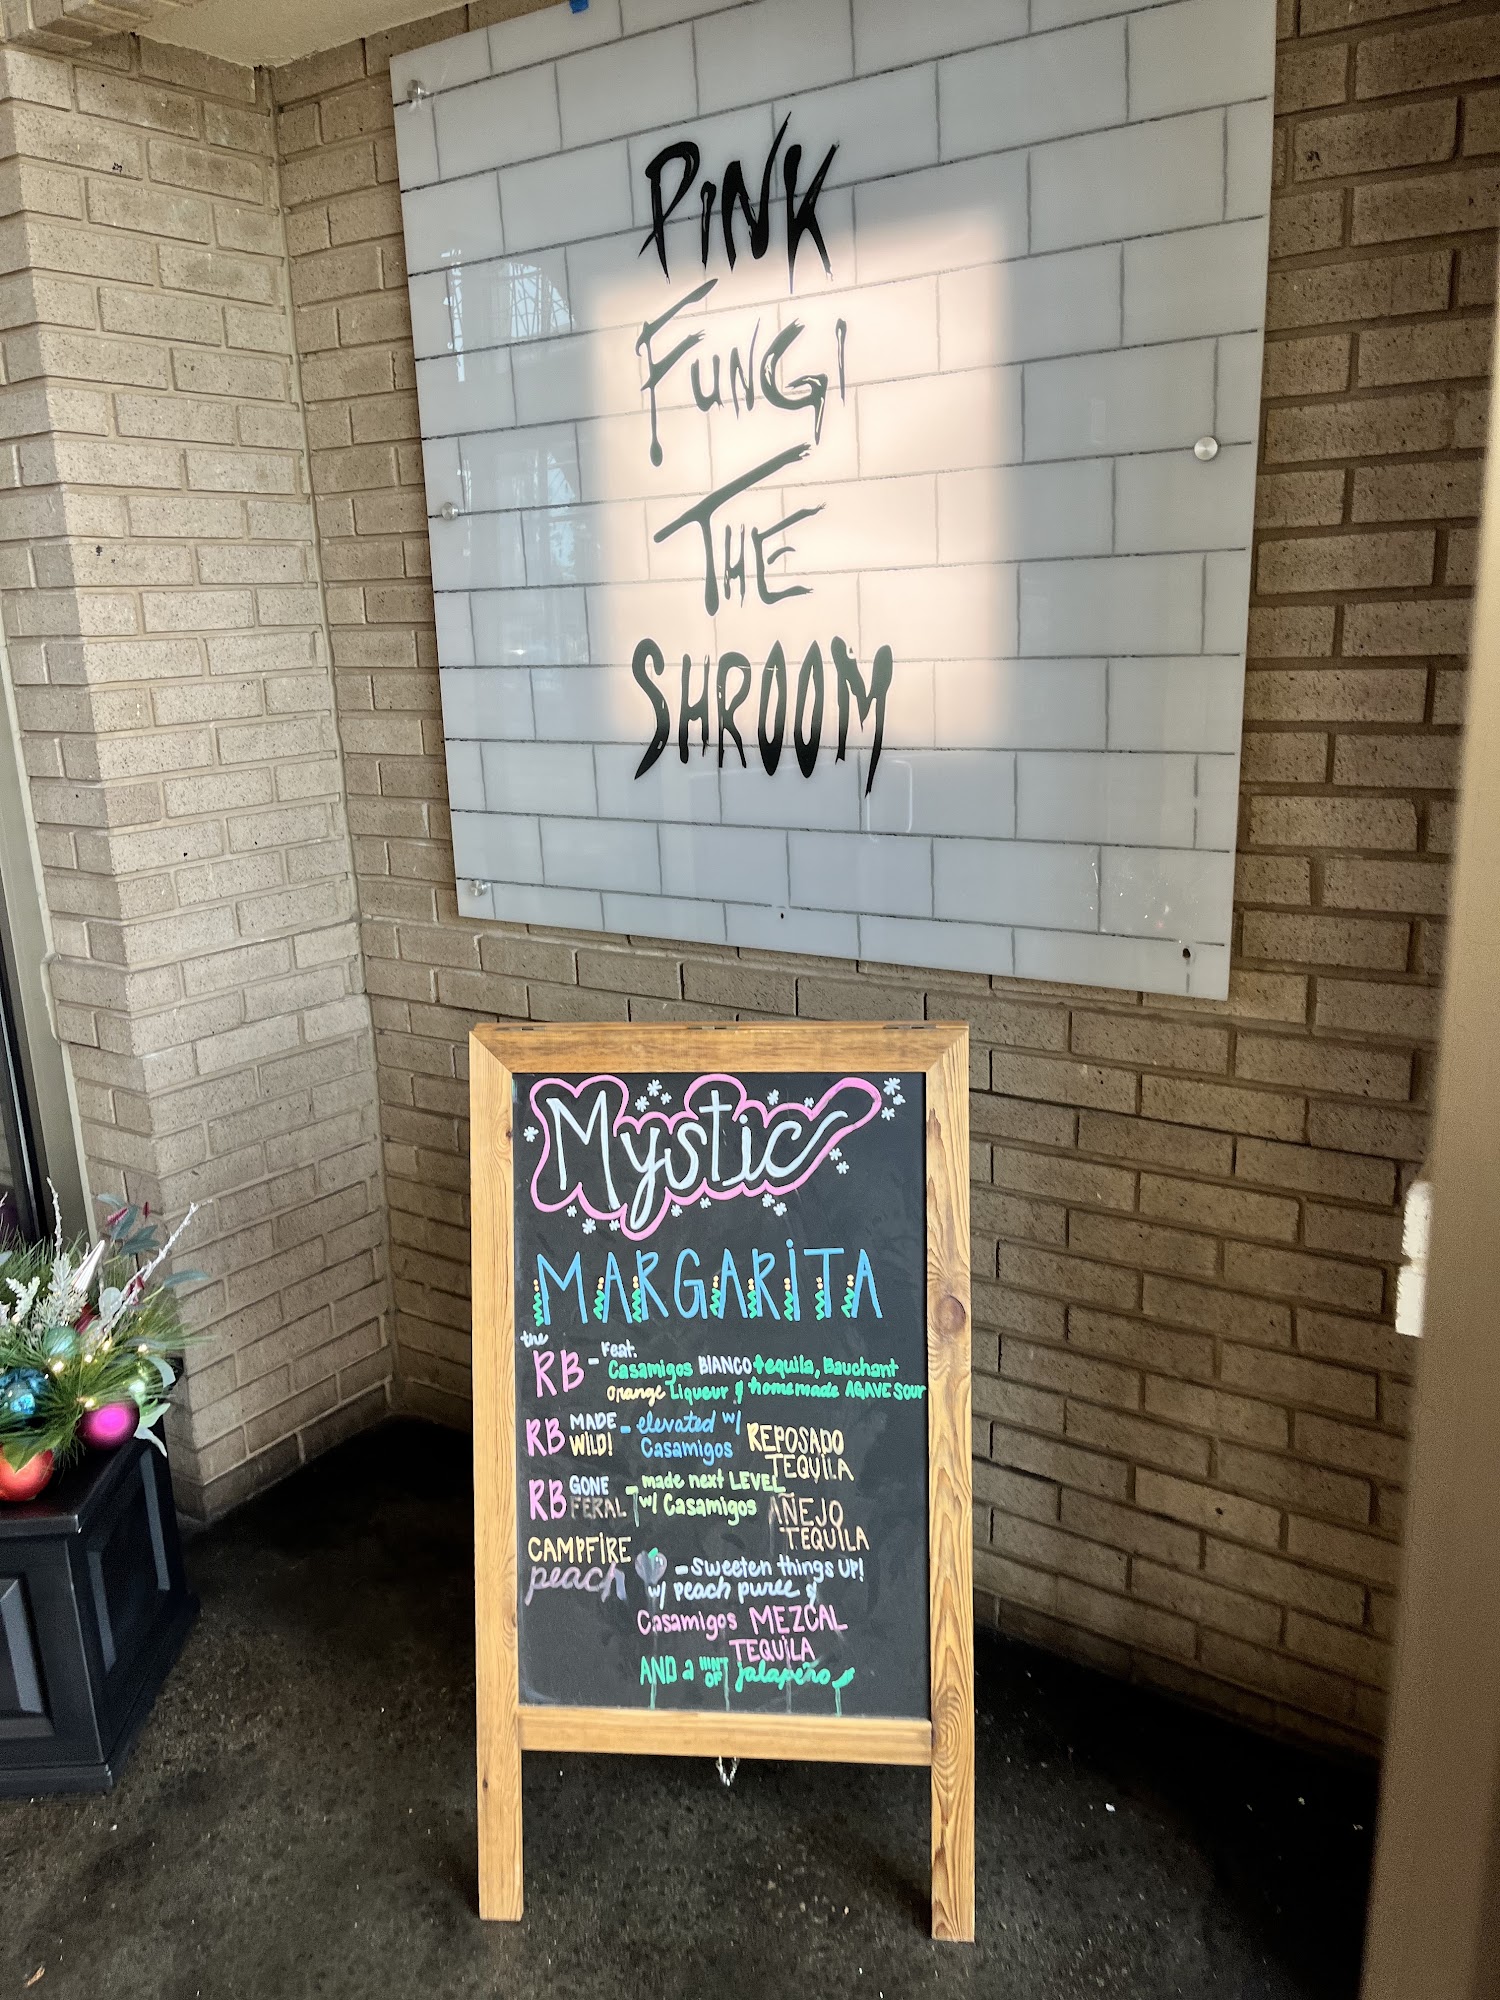 PiNK
FUNGi
THE
SHROOM
Mystic
MARGARiTA
the
RB - Feat.
Casamigos BIANCO tequila, Bauchant
Orange Liqueur & homemade AGAVE SOUR
RB MADE WiLD! - elevated w/
Casamigos REPOSADO
TEQUILA
RB GONE FERAL - made next LEVEL
w/ Casamigos AÑEJO
TEQUILA
CAMPFIRE
peach - Sweeten things UP!
w/ peach puree &
Casamigos MEZCAL
TEQUILA
AND a HINT OF jalapeño